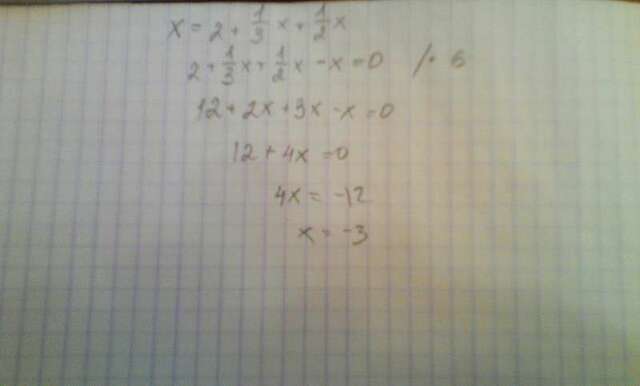 x = 2 + 1/3 x + 1/2 x
2 + 1/3 x + 1/2 x - x = 0 /· 6
12 + 2x + 3x - x = 0
12 + 4x = 0
4x = -12
x = -3